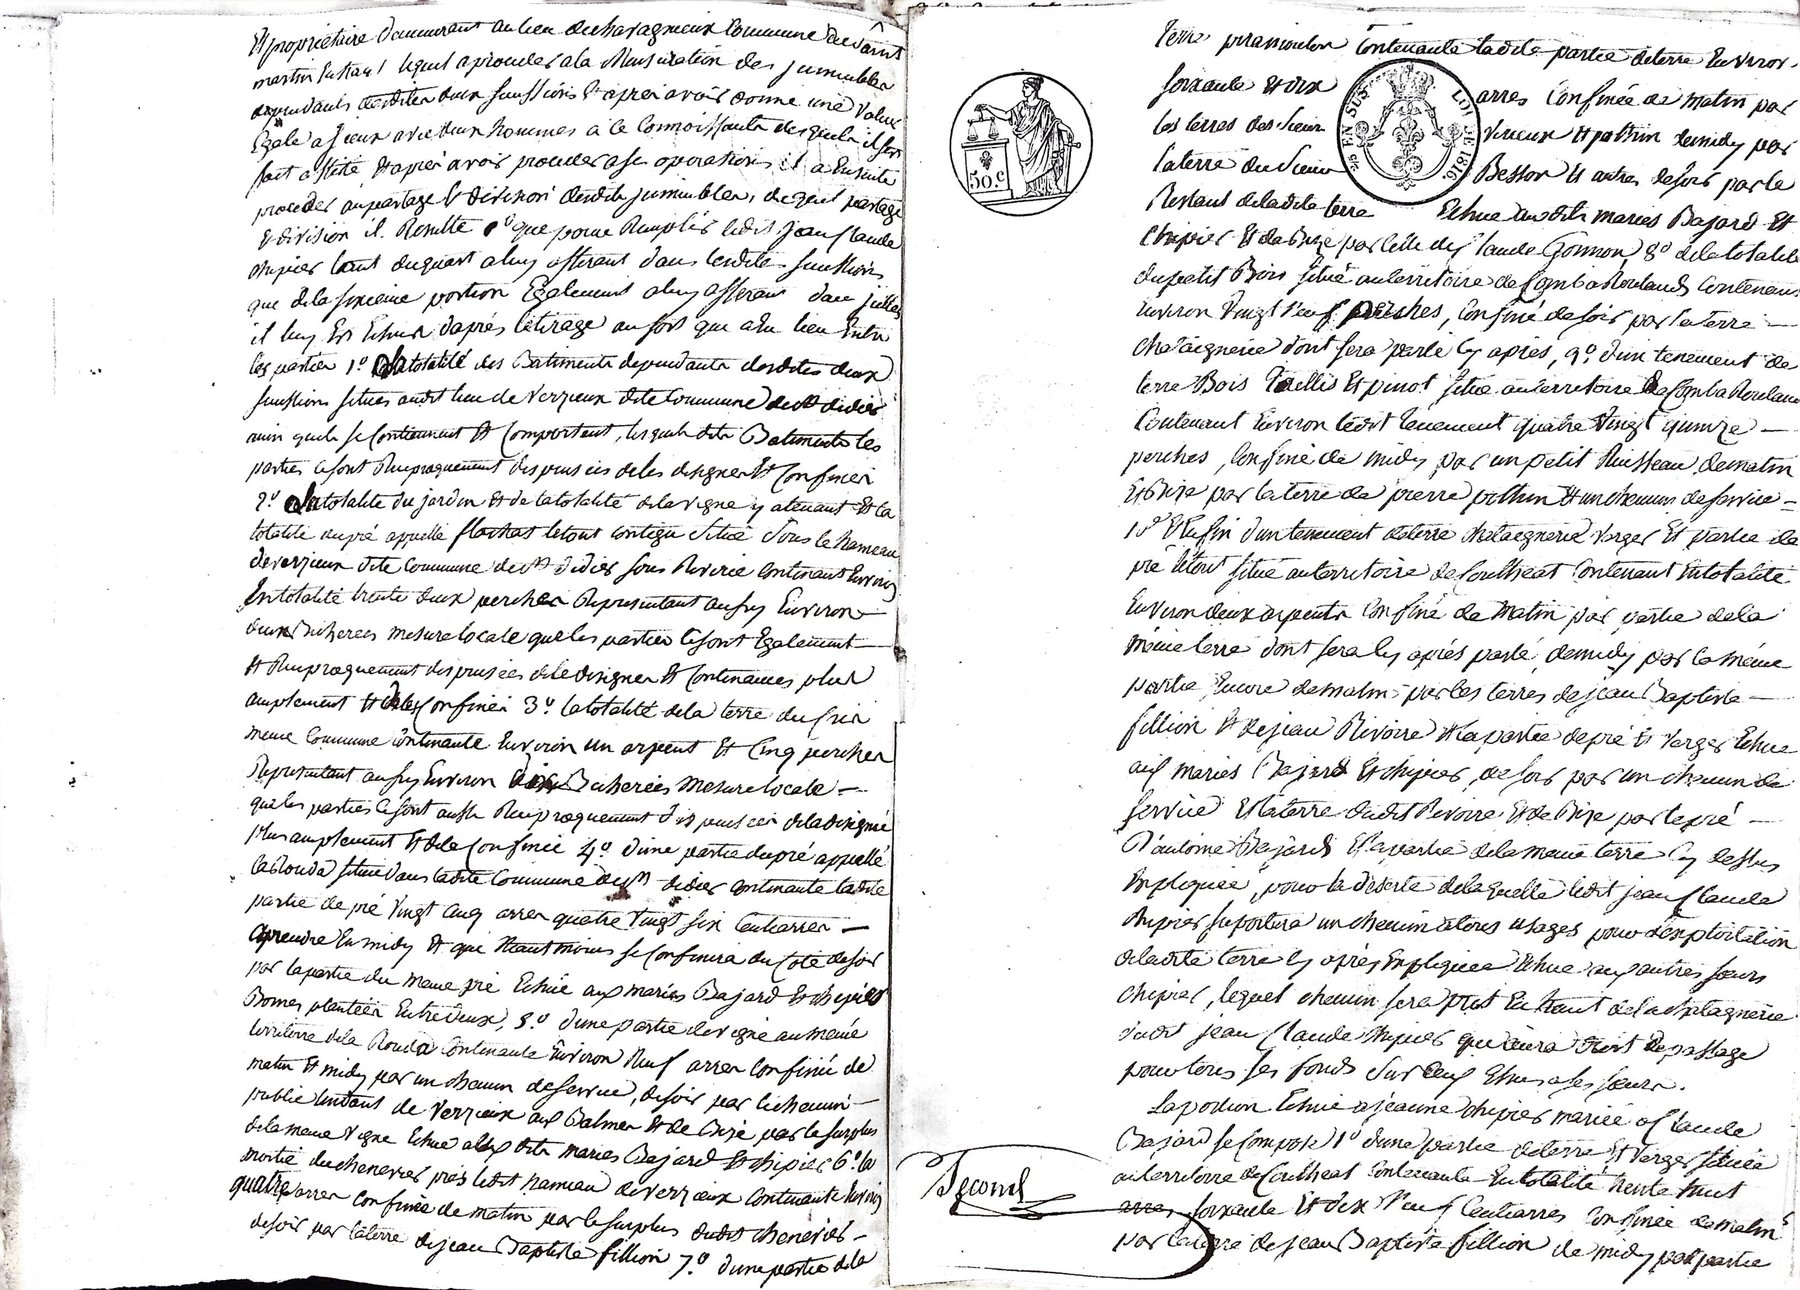 Et propriétaire demeurant au lieu de chavagnieux Commune de saint
martin lequel a procuder a la Mensuration des jmmeubles
dependants desdites deux sucessions & aprés avoir donné une Valeur
Egale a jceux avec deux hommes a ce Connoissants desquels il s'est
fait assisté & aprés avoir proceder a ses operations il a Ensuite
proceder au partage & division desdits jmmeubles, duquel partage
& division il Resulte 1º que pour Remplir ledit jean Claude
chipier tant du quart a luy afferant dans lesdites sucessions
que de la sixieme portion Egalement a luy afferant dans jcelles
il luy Est Echue d'aprés le tirage au sort que a Eu lieu Entre
les parties 1º La totalité des Batiments dependants desdites deux
sucessions situés audit lieu de Verzieux dite Commune de st didier
ainsi quels se Contiennent & Comportent, lesquels dits Batiments les
parties se sont Reciproquement dispensées de les designer & Confiner
2º La totalité du jardin & de la totalité de la vigne y atenant & la
totalité du pré appellé flachat le tout contigu Situé Sous le hameau
de verzieux dite Commune de st didier sous Riverie Contenant Environ
En totalité trente deux perches Representant aussy Environ
deux Bicherées mesure locale que les parties se sont Egalement
& Reciproquement dispensées de le designer & Contenances plus
amplement & de les Confiner 3º la totalité de la terre du
meme Commune Contenante Environ un arpent & Cinq perches
Representant aussy Environ dix Bicherées Mesure locale
que les parties se sont aussi Reciproquement dispensées de la designé
plus amplement & de la Confiner 4º d'une partie du pré appellé
la Rouda située dans ladite Commune de st didier Contenante ladite
partie de pré Vingt Cinq arres quatre Vingt six Centiarres
aprendre En midy & que Neantmoins se Confinera du Coté de soir
par la partie du meme pré Echue aux mariés Bajard & chipier
Bornes plantées Entre deux, 5º d'une partie de vigne au même
territoire de la Rouda Contenante Environ Neuf arres Confinée de
matin & midy par un chemin de service, de soir par le chemin
public tendant de Verzieux aux Balmes & de Bize par le surplus
de la meme vigne Echue aux dits mariés Bajard & chipier 6º la
moitié du chenevier prés ledit hameau de verzieux Contenante Environ
quatre arres Confinée de matin par le surplus dudit chenevier
de soir par la terre de jean Baptiste fillion 7º d'une partie de la
Terre Contenante ladite partie de terre Environ
soixante & dix arres Confinée de Matin par
les terres des Sieur Virieux & pothin de midy par
la terre du Sieur Besson & autres de soir par le
Restant de ladite terre Echue aux dits mariés Bajard Et
chipier & de Bize par Celle de Claude Gonnon, 8º de la totalité
du petit Bois situé au territoire de Comba Rouland Contenant
Environ Vingt Neuf perches, Confiné de soir par la terre
chataignerie dont sera parlé Cy aprés, 9º d'un tenement de
terre Bois Taillis & pinot situé au territoire de Comba Rouland
Contenant Environ ledit tenement quatre Vingt quinze
perches, Confiné de midy par un petit Ruisseau de matin
& Bize par la terre de pierre pothin & un chemin de service
10º Et Enfin d'un tenement de terre chataignerie Verger Et partie de
pré le tout situé au territoire de Coultheat Contenant En totalité
Environ deux arpents Confiné de Matin par partie de la
même terre dont sera Cy aprés parlé, de midy par la même
partie, Encore de matin par les terres de jean Baptiste
fillion & de jean Rivoire & la partie de pré & Verger Echue
aux mariés Bajard & chipier, de soir par un chemin de
service & la terre dudit Rivoire & de Bize par le pré
D'antoine Bajard & la partie de la meme terre Cy dessus
Expliquée, pour la deserte de laquelle ledit jean Claude
chipier suportera un chemin a tous usages pour l'exploitation
de ladite terre Cy aprés Expliquée Echue aux autres soeurs
chipier, lequel chemin sera pris En haut de la chataignerie
dudit jean Claude chipier qui aura droit de passage
pour tous ses fonds sur Ceux Echus a ses soeurs.
La portion Echue a jeanne chipier mariée a Claude
Bajard se Compose 1º d'une partie de terre Et Verger située
au territoire de Coultheat Contenante En totalité trente huit
arres soixante Et dix Neuf Centiarres Confinée de matin
par la terre de jean Baptiste fillion de midy par partie
50.C
EN SUS LOI DE 1816
Second